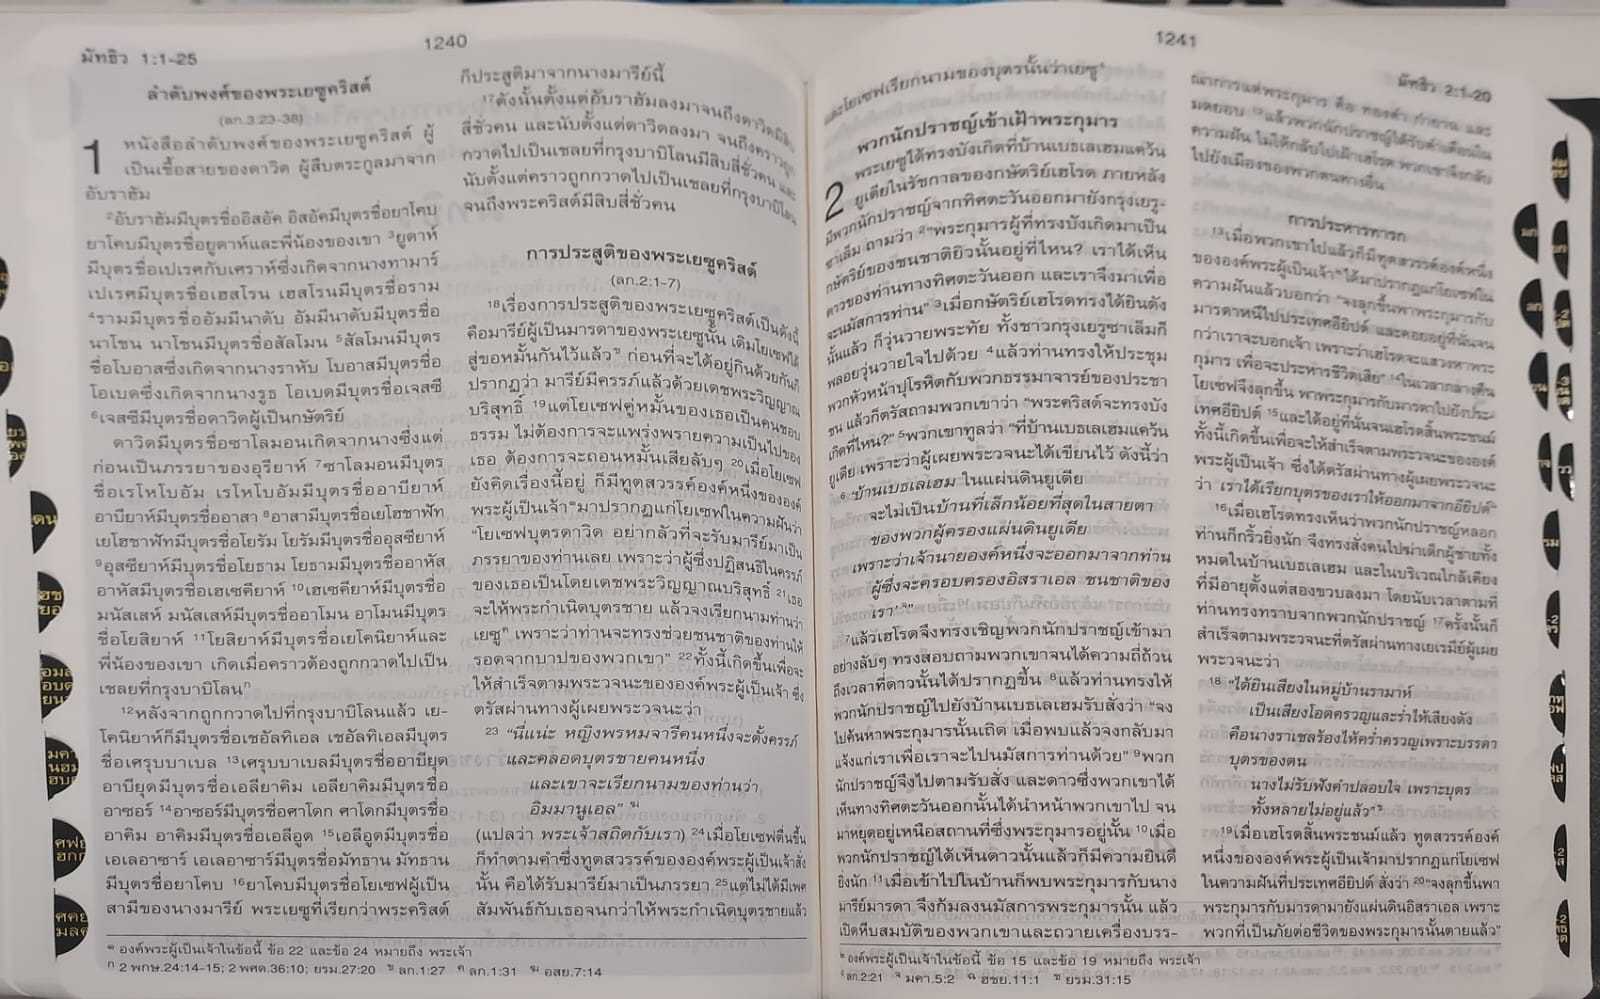 มัทธิว 1:1-25
1240
ลำดับพงศ์ของพระเยซูคริสต์
(ลก.3:23-38)
1 หนังสือลำดับพงศ์ของพระเยซูคริสต์ ผู้
เป็นเชื้อสายของดาวิด ผู้สืบตระกูลมาจาก
อับราฮัม
2อับราฮัมมีบุตรชื่ออิสอัค อิสอัคมีบุตรชื่อยาโคบ
ยาโคบมีบุตรชื่อยูดาห์และพี่น้องของเขา 3ยูดาห์
มีบุตรชื่อเปเรศกับเศราห์ซึ่งเกิดจากนางทามาร์
เปเรศมีบุตรชื่อเฮสโรน เฮสโรนมีบุตรชื่อราม
4รามมีบุตรชื่ออัมมีนาดับ อัมมีนาดับมีบุตรชื่อ
นาโชน นาโชนมีบุตรชื่อสัลโมน 5สัลโมนมีบุตร
ชื่อโบอาสซึ่งเกิดจากนางราหับ โบอาสมีบุตรชื่อ
โอเบดซึ่งเกิดจากนางรูธ โอเบดมีบุตรชื่อเจสซี
6เจสซีมีบุตรชื่อดาวิดผู้เป็นกษัตริย์
ดาวิดมีบุตรชื่อซาโลมอนเกิดจากนางซึ่งแต่
ก่อนเป็นภรรยาของอุรียาห์ 7ซาโลมอนมีบุตร
ชื่อเรโหโบอัม เรโหโบอัมมีบุตรชื่ออาบียาห์
อาบียาห์มีบุตรชื่ออาสา 8อาสามีบุตรชื่อเยโฮชาฟัท
เยโฮชาฟัทมีบุตรชื่อโยรัม โยรัมมีบุตรชื่ออุสซียาห์
9อุสซียาห์มีบุตรชื่อโยธาม โยธามมีบุตรชื่ออาหัส
อาหัสมีบุตรชื่อเฮเซคียาห์ 10เฮเซคียาห์มีบุตรชื่อ
มนัสเสห์ มนัสเสห์มีบุตรชื่ออาโมน อาโมนมีบุตร
ชื่อโยสิยาห์ 11โยสิยาห์มีบุตรชื่อเยโคนิยาห์และ
พี่น้องของเขา เกิดเมื่อคราวต้องถูกกวาดไปเป็น
เชลยที่กรุงบาบิโลนก
12หลังจากถูกกวาดไปที่กรุงบาบิโลนแล้ว เย-
โคนิยาห์ก็มีบุตรชื่อเชอัลทิเอล เชอัลทิเอลมีบุตร
ชื่อเศรุบบาเบล 13เศรุบบาเบลมีบุตรชื่ออาบียุด
อาบียุดมีบุตรชื่อเอลียาคิม เอลียาคิมมีบุตรชื่อ
อาซอร์ 14อาซอร์มีบุตรชื่อศาโดก ศาโดกมีบุตรชื่อ
อาคิม อาคิมมีบุตรชื่อเอลีอูด 15เอลีอูดมีบุตรชื่อ
เอเลอาซาร์ เอเลอาซาร์มีบุตรชื่อมัทธาน มัทธาน
มีบุตรชื่อยาโคบ 16ยาโคบมีบุตรชื่อโยเซฟผู้เป็น
สามีของนางมารีย์ พระเยซูที่เรียกว่าพระคริสต์
ก็ประสูติมาจากนางมารีย์นี้
17ดังนั้นตั้งแต่อับราฮัมลงมาจนถึงดาวิดมีสิบ
สี่ชั่วคน และนับตั้งแต่ดาวิดลงมา จนถึงคราวถูก
กวาดไปเป็นเชลยที่กรุงบาบิโลนมีสิบสี่ชั่วคน และ
นับตั้งแต่คราวถูกกวาดไปเป็นเชลยที่กรุงบาบิโลน
จนถึงพระคริสต์มีสิบสี่ชั่วคน
การประสูติของพระเยซูคริสต์
(ลก.2:1-7)
18เรื่องการประสูติของพระเยซูคริสต์เป็นดังนี้
คือมารีย์ผู้เป็นมารดาของพระเยซูนั้น เดิมโยเซฟได้
สู่ขอหมั้นกันไว้แล้วข ก่อนที่จะได้อยู่กินด้วยกันก็
ปรากฏว่า มารีย์มีครรภ์แล้วด้วยเดชพระวิญญาณ
บริสุทธิ์ 19แต่โยเซฟคู่หมั้นของเธอเป็นคนชอบ
ธรรม ไม่ต้องการจะแพร่งพรายความเป็นไปของ
เธอ ต้องการจะถอนหมั้นเสียลับๆ 20เมื่อโยเซฟ
ยังคิดเรื่องนี้อยู่ ก็มีทูตสวรรค์องค์หนึ่งขององค์
พระผู้เป็นเจ้า*มาปรากฏแก่โยเซฟในความฝันว่า
“โยเซฟบุตรดาวิด อย่ากลัวที่จะรับมารีย์มาเป็น
ภรรยาของท่านเลย เพราะว่าผู้ซึ่งปฏิสนธิในครรภ์
ของเธอเป็นโดยเดชพระวิญญาณบริสุทธิ์ 21เธอ
จะให้พระกำเนิดบุตรชาย แล้วจงเรียกนามท่านว่า
เยซูค เพราะว่าท่านจะทรงช่วยชนชาติของท่านให้
รอดจากบาปของพวกเขา” 22ทั้งนี้เกิดขึ้นเพื่อจะ
ให้สำเร็จตามพระวจนะขององค์พระผู้เป็นเจ้า ซึ่ง
ตรัสผ่านทางผู้เผยพระวจนะว่า
23 “นี่แน่ะ หญิงพรหมจารีคนหนึ่งจะตั้งครรภ์
และคลอดบุตรชายคนหนึ่ง
และเขาจะเรียกนามของท่านว่า
อิมมานูเอล”ฆ
(แปลว่า พระเจ้าสถิตกับเรา) 24เมื่อโยเซฟตื่นขึ้น
ก็ทำตามคำซึ่งทูตสวรรค์ขององค์พระผู้เป็นเจ้าสั่ง
นั้น คือได้รับมารีย์มาเป็นภรรยา 25แต่ไม่ได้มีเพศ
สัมพันธ์กับเธอจนกว่าให้พระกำเนิดบุตรชายแล้ว
* องค์พระผู้เป็นเจ้าในข้อนี้ ข้อ 22 และข้อ 24 หมายถึง พระเจ้า
ก 2 พกษ.24:14-15; 2 พศด.36:10; ยรม.27:20 ข ลก.1:27 ค ลก.1:31 ฆ อสย.7:14
1241
มัทธิว 2:1-20
และโยเซฟเรียกนามของบุตรนั้นว่าเยซูง
พวกนักปราชญ์เข้าเฝ้าพระกุมาร
2 พระเยซูได้ทรงบังเกิดที่บ้านเบธเลเฮมแคว้น
ยูเดียในรัชกาลของกษัตริย์เฮโรด ภายหลัง
มีพวกนักปราชญ์จากทิศตะวันออกมายังกรุงเยรู-
ซาเล็ม ถามว่า 2“พระกุมารผู้ที่ทรงบังเกิดมาเป็น
กษัตริย์ของชนชาติยิวนั้นอยู่ที่ไหน? เราได้เห็น
ดาวของท่านทางทิศตะวันออก และเราจึงมาเพื่อ
จะนมัสการท่าน” 3เมื่อกษัตริย์เฮโรดทรงได้ยินดัง
นั้นแล้ว ก็วุ่นวายพระทัย ทั้งชาวกรุงเยรูซาเล็มก็
พลอยวุ่นวายใจไปด้วย 4แล้วท่านทรงให้ประชุม
พวกหัวหน้าปุโรหิตกับพวกธรรมาจารย์ของประชา
ชน แล้วก็ตรัสถามพวกเขาว่า “พระคริสต์จะทรงบัง
เกิดที่ไหน?” 5พวกเขาทูลว่า “ที่บ้านเบธเลเฮมแคว้น
ยูเดีย เพราะว่าผู้เผยพระวจนะได้เขียนไว้ ดังนี้ว่า
6 ‘บ้านเบธเลเฮม ในแผ่นดินยูเดีย
จะไม่เป็นบ้านที่เล็กน้อยที่สุดในสายตา
ของพวกผู้ครองแผ่นดินยูเดีย
เพราะว่าเจ้านายองค์หนึ่งจะออกมาจากท่าน
ผู้ซึ่งจะครอบครองอิสราเอล ชนชาติของ
เรา’จ”
7แล้วเฮโรดจึงทรงเชิญพวกนักปราชญ์เข้ามา
อย่างลับๆ ทรงสอบถามพวกเขาจนได้ความถี่ถ้วน
ถึงเวลาที่ดาวนั้นได้ปรากฏขึ้น 8แล้วท่านทรงให้
พวกนักปราชญ์ไปยังบ้านเบธเลเฮมรับสั่งว่า “จง
ไปค้นหาพระกุมารนั้นเถิด เมื่อพบแล้วจงกลับมา
แจ้งแก่เราเพื่อเราจะไปนมัสการท่านด้วย” 9พวก
นักปราชญ์จึงไปตามรับสั่ง และดาวซึ่งพวกเขาได้
เห็นทางทิศตะวันออกนั้นได้นำหน้าพวกเขาไป จน
มาหยุดอยู่เหนือสถานที่ซึ่งพระกุมารอยู่นั้น 10เมื่อ
พวกนักปราชญ์ได้เห็นดาวนั้นแล้วก็มีความยินดี
ยิ่งนัก 11เมื่อเข้าไปในบ้านก็พบพระกุมารกับนาง
มารีย์มารดา จึงก้มลงนมัสการพระกุมารนั้น แล้ว
เปิดหีบสมบัติของพวกเขาและถวายเครื่องบรร-
ณาการแด่พระกุมาร คือ ทองคำ กำยาน และ
มดยอบ 12แล้วพวกนักปราชญ์ได้รับคำเตือนใน
ความฝัน ไม่ให้กลับไปเฝ้าเฮโรด พวกเขาจึงกลับ
ไปยังเมืองของพวกตนทางอื่น
การประหารทารก
13เมื่อพวกเขาไปแล้วก็มีทูตสวรรค์องค์หนึ่ง
ขององค์พระผู้เป็นเจ้า*ได้มาปรากฏแก่โยเซฟใน
ความฝันแล้วบอกว่า “จงลุกขึ้นพาพระกุมารกับ
มารดาหนีไปประเทศอียิปต์ และคอยอยู่ที่นั่นจน
กว่าเราจะบอกเจ้า เพราะว่าเฮโรดจะแสวงหาพระ
กุมาร เพื่อจะประหารชีวิตเสีย” 14ในเวลากลางคืน
โยเซฟจึงลุกขึ้น พาพระกุมารกับมารดาไปยังประ-
เทศอียิปต์ 15และได้อยู่ที่นั่นจนเฮโรดสิ้นพระชนม์
ทั้งนี้เกิดขึ้นเพื่อจะให้สำเร็จตามพระวจนะขององค์
พระผู้เป็นเจ้า ซึ่งได้ตรัสผ่านทางผู้เผยพระวจนะ
ว่า “เราได้เรียกบุตรของเราให้ออกมาจากอียิปต์”ฉ
16เมื่อเฮโรดทรงเห็นว่าพวกนักปราชญ์หลอก
ท่านก็กริ้วยิ่งนัก จึงทรงสั่งคนไปฆ่าเด็กผู้ชายทั้ง
หมดในบ้านเบธเลเฮม และในบริเวณใกล้เคียง
ที่มีอายุตั้งแต่สองขวบลงมา โดยนับเวลาตามที่
ท่านทรงทราบจากพวกนักปราชญ์ 17ครั้งนั้นก็
สำเร็จตามพระวจนะที่ตรัสผ่านทางเยเรมีย์ผู้เผย
พระวจนะว่า
18 “ได้ยินเสียงในหมู่บ้านรามาห์
เป็นเสียงโอดครวญและร่ำไห้เสียงดัง
คือนางราเชลร้องไห้คร่ำครวญเพราะบรรดา
บุตรของตน
นางไม่รับฟังคำปลอบใจ เพราะบุตร
ทั้งหลายไม่อยู่แล้ว”ช
19เมื่อเฮโรดสิ้นพระชนม์แล้ว ทูตสวรรค์องค์
หนึ่งขององค์พระผู้เป็นเจ้ามาปรากฏแก่โยเซฟ
ในความฝันที่ประเทศอียิปต์ สั่งว่า 20“จงลุกขึ้นพา
พระกุมารกับมารดามายังแผ่นดินอิสราเอล เพราะ
พวกที่เป็นภัยต่อชีวิตของพระกุมารนั้นตายแล้ว”
* องค์พระผู้เป็นเจ้าในข้อนี้ ข้อ 15 และข้อ 19 หมายถึง พระเจ้า
ง ลก.2:21 จ มคา.5:2 ฉ ฮชย.11:1 ช ยรม.31:15